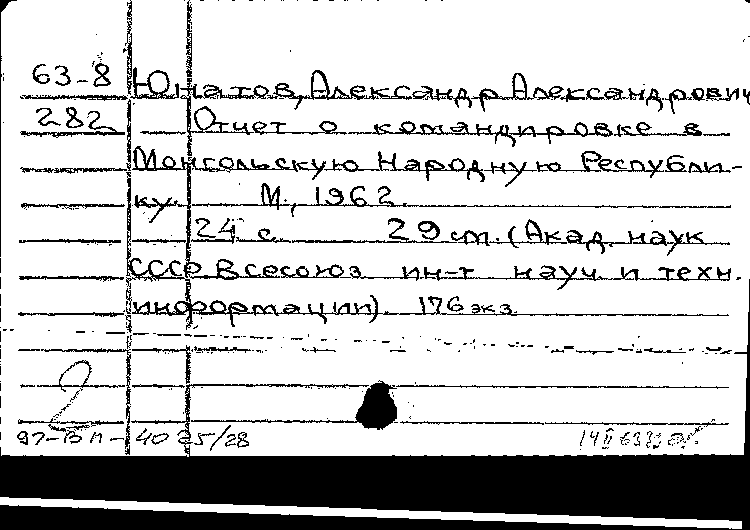 63-8 Юнатов, Александр Александрович
282 Отчет о командировке в
Монгольскую Народную Республи-
ку. М., 1962.
24 с. 29 см. (Акад. наук
СССР. Всесоюз. ин-т науч. и техн.
информации). 176 экз.
2
97-В П-40 25/28
14 II 63